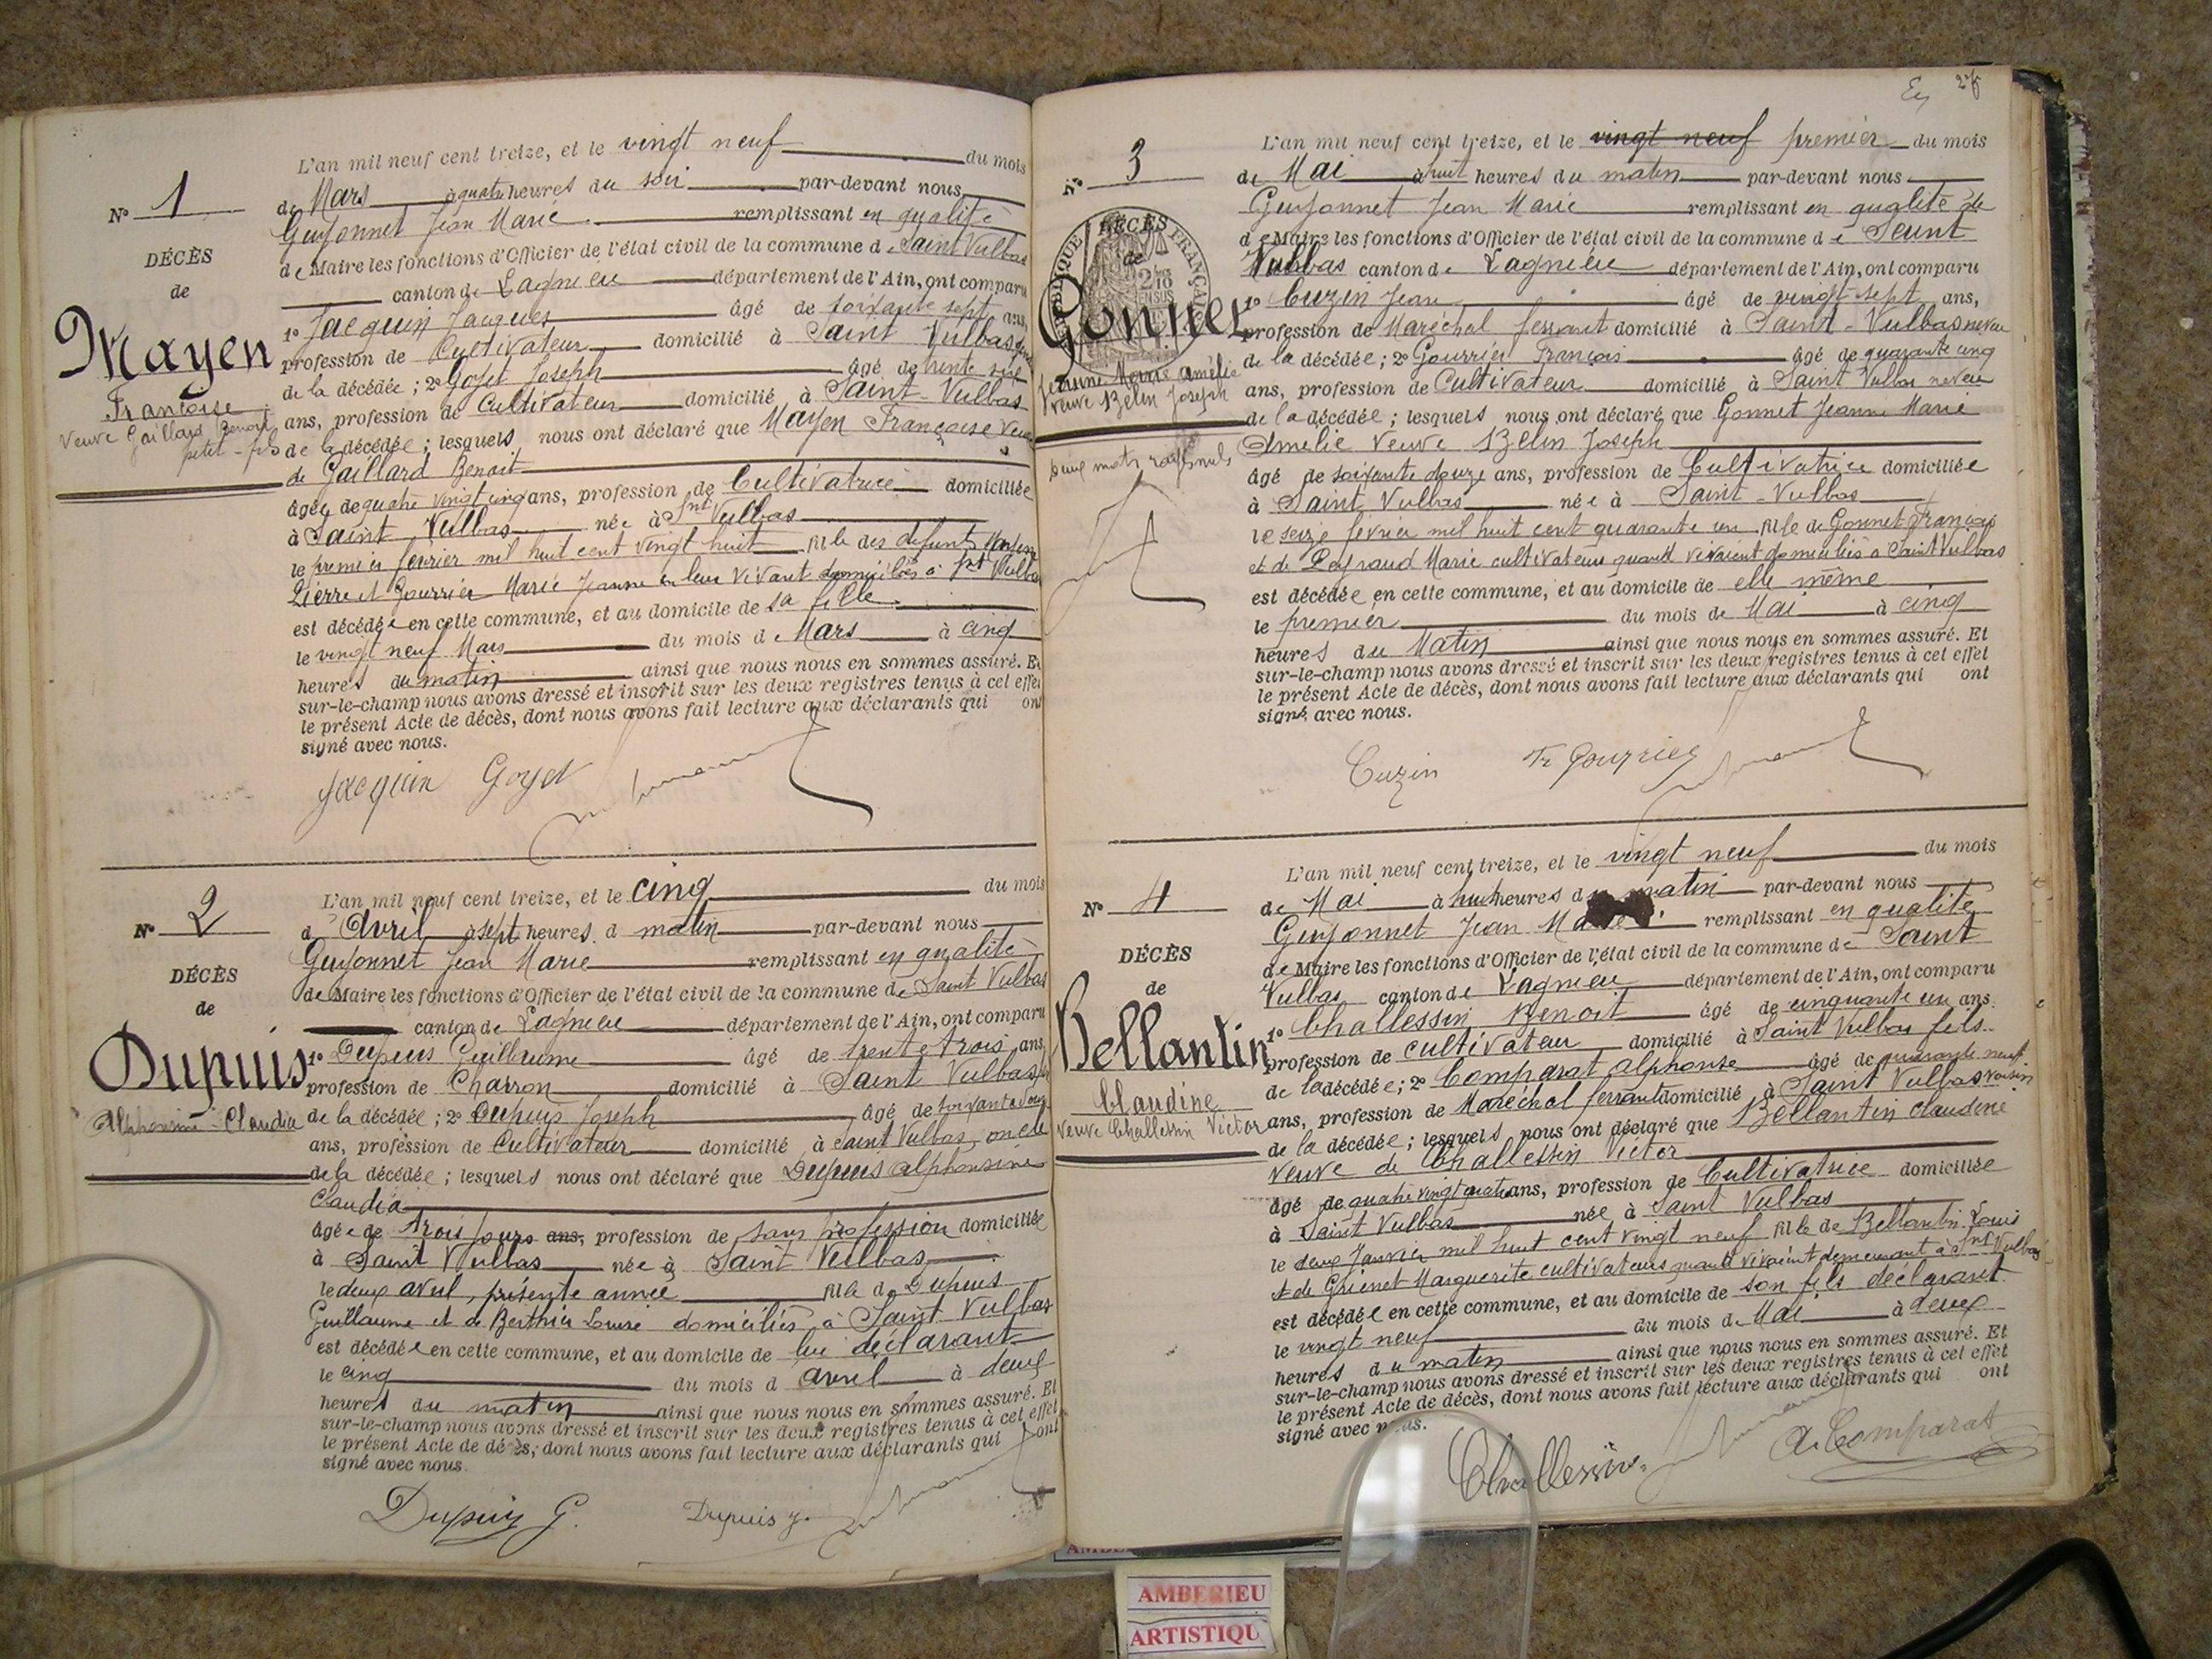 L'an mil neuf cent treize, et le vingt neuf du mois
Nº 1
de Mars à quatre heures du soir par-devant nous
Guyonnet Jean Marie remplissant en qualité
de Maire les fonctions d'Officier de l'état civil de la commune de Saint Vulbas
DÉCÈS
de
canton de Lagnieu département de l'Ain, ont comparu
Mayen
Françoise
Veuve Gaillard Benoit
petit-fils
1º Jacquin Jacques âgé de soixante sept ans,
profession de Cultivateur domicilié à Saint Vulbas
de la décédée; 2º Goyet Joseph âgé de trente six
ans, profession de Cultivateur domicilié à Saint-Vulbas
de la décédée; lesquels nous ont déclaré que Mayen Françoise Veuve
de Gaillard Benoit
âgée de quatre vingt cinq ans, profession de Cultivatrice domiciliée
à Saint Vulbas née à Snt Vulbas
le premier février mil huit cent vingt huit fille des défunts Mayen
Pierre et Gourrier Marie Jeanne en leur vivant domiciliés à Snt Vulbas
est décédée en cette commune, et au domicile de sa fille
le vingt neuf Mars du mois de Mars à cinq
heures du matin ainsi que nous nous en sommes assuré. Et
sur-le-champ nous avons dressé et inscrit sur les deux registres tenus à cet effet
le présent Acte de décès, dont nous avons fait lecture aux déclarants qui ont
signé avec nous.
Jacquin Goyet
L'an mil neuf cent treize, et le cinq du mois
Nº 2
d'Avril à sept heures d matin par-devant nous
Guyonnet Jean Marie remplissant en qualité
de Maire les fonctions d'Officier de l'état civil de la commune de Saint Vulbas
DÉCÈS
de
canton de Lagnieu département de l'Ain, ont comparu
Dupuis
Alphonsine Claudia
1º Dupuis Guillaume âgé de trente trois ans,
profession de Charron domicilié à Saint Vulbas
de la décédée; 2º Dupuis Joseph âgé de
ans, profession de Cultivateur domicilié à Saint Vulbas oncle
de la décédée; lesquels nous ont déclaré que Dupuis alphonsine
Claudia
âgée de trois jours ans, profession de sans profession domiciliée
à Saint Vulbas née à Saint Vulbas
le deux avril, présente année fille de Dupuis
Guillaume et de Berthier Louise domiciliés à Saint Vulbas
est décédée en cette commune, et au domicile de lui déclarant
le cinq du mois d avril à deux
heures du matin ainsi que nous nous en sommes assuré. Et
sur-le-champ nous avons dressé et inscrit sur les deux registres tenus à cet effet
le présent Acte de décès, dont nous avons fait lecture aux déclarants qui ont
signé avec nous.
Dupuis G. Dupuis J.
27
L'an mil neuf cent treize, et le vingt neuf premier du mois
Nº 3
de Mai à huit heures du matin par-devant nous
Guyonnet Jean Marie remplissant en qualité de
de Maire les fonctions d'Officier de l'état civil de la commune de Saint
Vulbas canton de Lagnieu département de l'Ain, ont comparu
DÉCÈS
de
Gonnet
Jeanne Marie Amélie
veuve Belin Joseph
deux mots rayés nuls
1º Cuzin Jean âgé de vingt sept ans,
profession de Maréchal ferrant domicilié à Saint-Vulbas neveu
de la décédée; 2º Gourrier François âgé de quarante cinq
ans, profession de Cultivateur domicilié à Saint Vulbas neveu
de la décédée; lesquels nous ont déclaré que Gonnet Jeanne Marie
Amélie Veuve Belin Joseph
âgé de soixante douze ans, profession de Cultivatrice domiciliée
à Saint Vulbas née à Saint-Vulbas
le seize février mil huit cent quarante un fille de Gonnet François
et de Peyraud Marie cultivateurs quand vivaient domiciliés à Saint Vulbas
est décédée en cette commune, et au domicile de elle même
le premier du mois de Mai à cinq
heures du Matin ainsi que nous nous en sommes assuré. Et
sur-le-champ nous avons dressé et inscrit sur les deux registres tenus à cet effet
le présent Acte de décès, dont nous avons fait lecture aux déclarants qui ont
signé avec nous.
Cuzin Fr Gourrier
L'an mil neuf cent treize, et le vingt neuf du mois
Nº 4
de Mai à huit heures du matin par-devant nous
Guyonnet Jean Marie remplissant en qualité
de Maire les fonctions d'Officier de l'état civil de la commune de Saint
DÉCÈS
de
Vulbas canton de Lagnieu département de l'Ain, ont comparu
Bellantin
Claudine
Veuve Challessin Victor
1º Challessin Benoit âgé de cinquante un ans
profession de cultivateur domicilié à Saint Vulbas fils
de la décédée; 2º Comparat alphonse âgé de quarante neuf
ans, profession de Maréchal ferrant domicilié à Saint Vulbas voisin
de la décédée; lesquels nous ont déclaré que Bellantin Claudine
Veuve de Challessin Victor
âgé de quatre vingt quatre ans, profession de Cultivatrice domiciliée
à Saint Vulbas née à Saint Vulbas
le deux Janvier mil huit cent vingt neuf fille de Bellantin Louis
et de Grienet Marguerite cultivateurs quand vivaient demeurant à Snt Vulbas
est décédée en cette commune, et au domicile de son fils déclarant
le vingt neuf du mois de Mai à deux
heures du matin ainsi que nous nous en sommes assuré. Et
sur-le-champ nous avons dressé et inscrit sur les deux registres tenus à cet effet
le présent Acte de décès, dont nous avons fait lecture aux déclarants qui ont
signé avec nous.
Challessin A. Comparat
AMBERIEU
ARTISTIQU